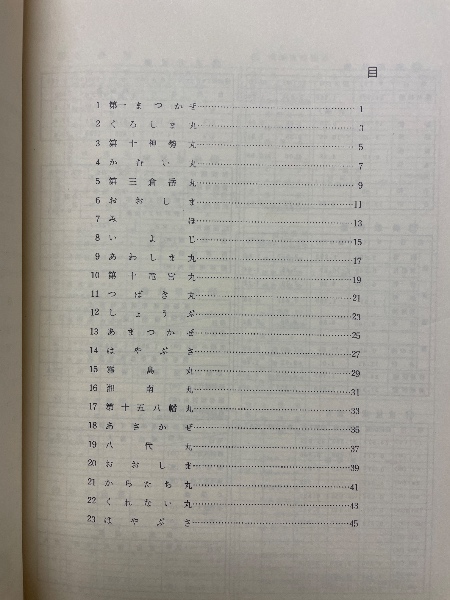 目
1 第一まつかぜ 1
2 くろしま丸 3
3 第十神勢丸 5
4 かせい丸 7
5 第三倉橋丸 9
6 おおしま 11
7 みほ 13
8 いよじ 15
9 あわしま丸 17
10 第十竜宮丸 19
11 つばき丸 21
12 しょうぶ 23
13 あまつかぜ 25
14 はやぶさ 27
15 霧島丸 29
16 湘南丸 31
17 第十五八幡丸 33
18 あさかぜ 35
19 八代丸 37
20 おおしま 39
21 からたち丸 41
22 くれない丸 43
23 はやぶさ 45